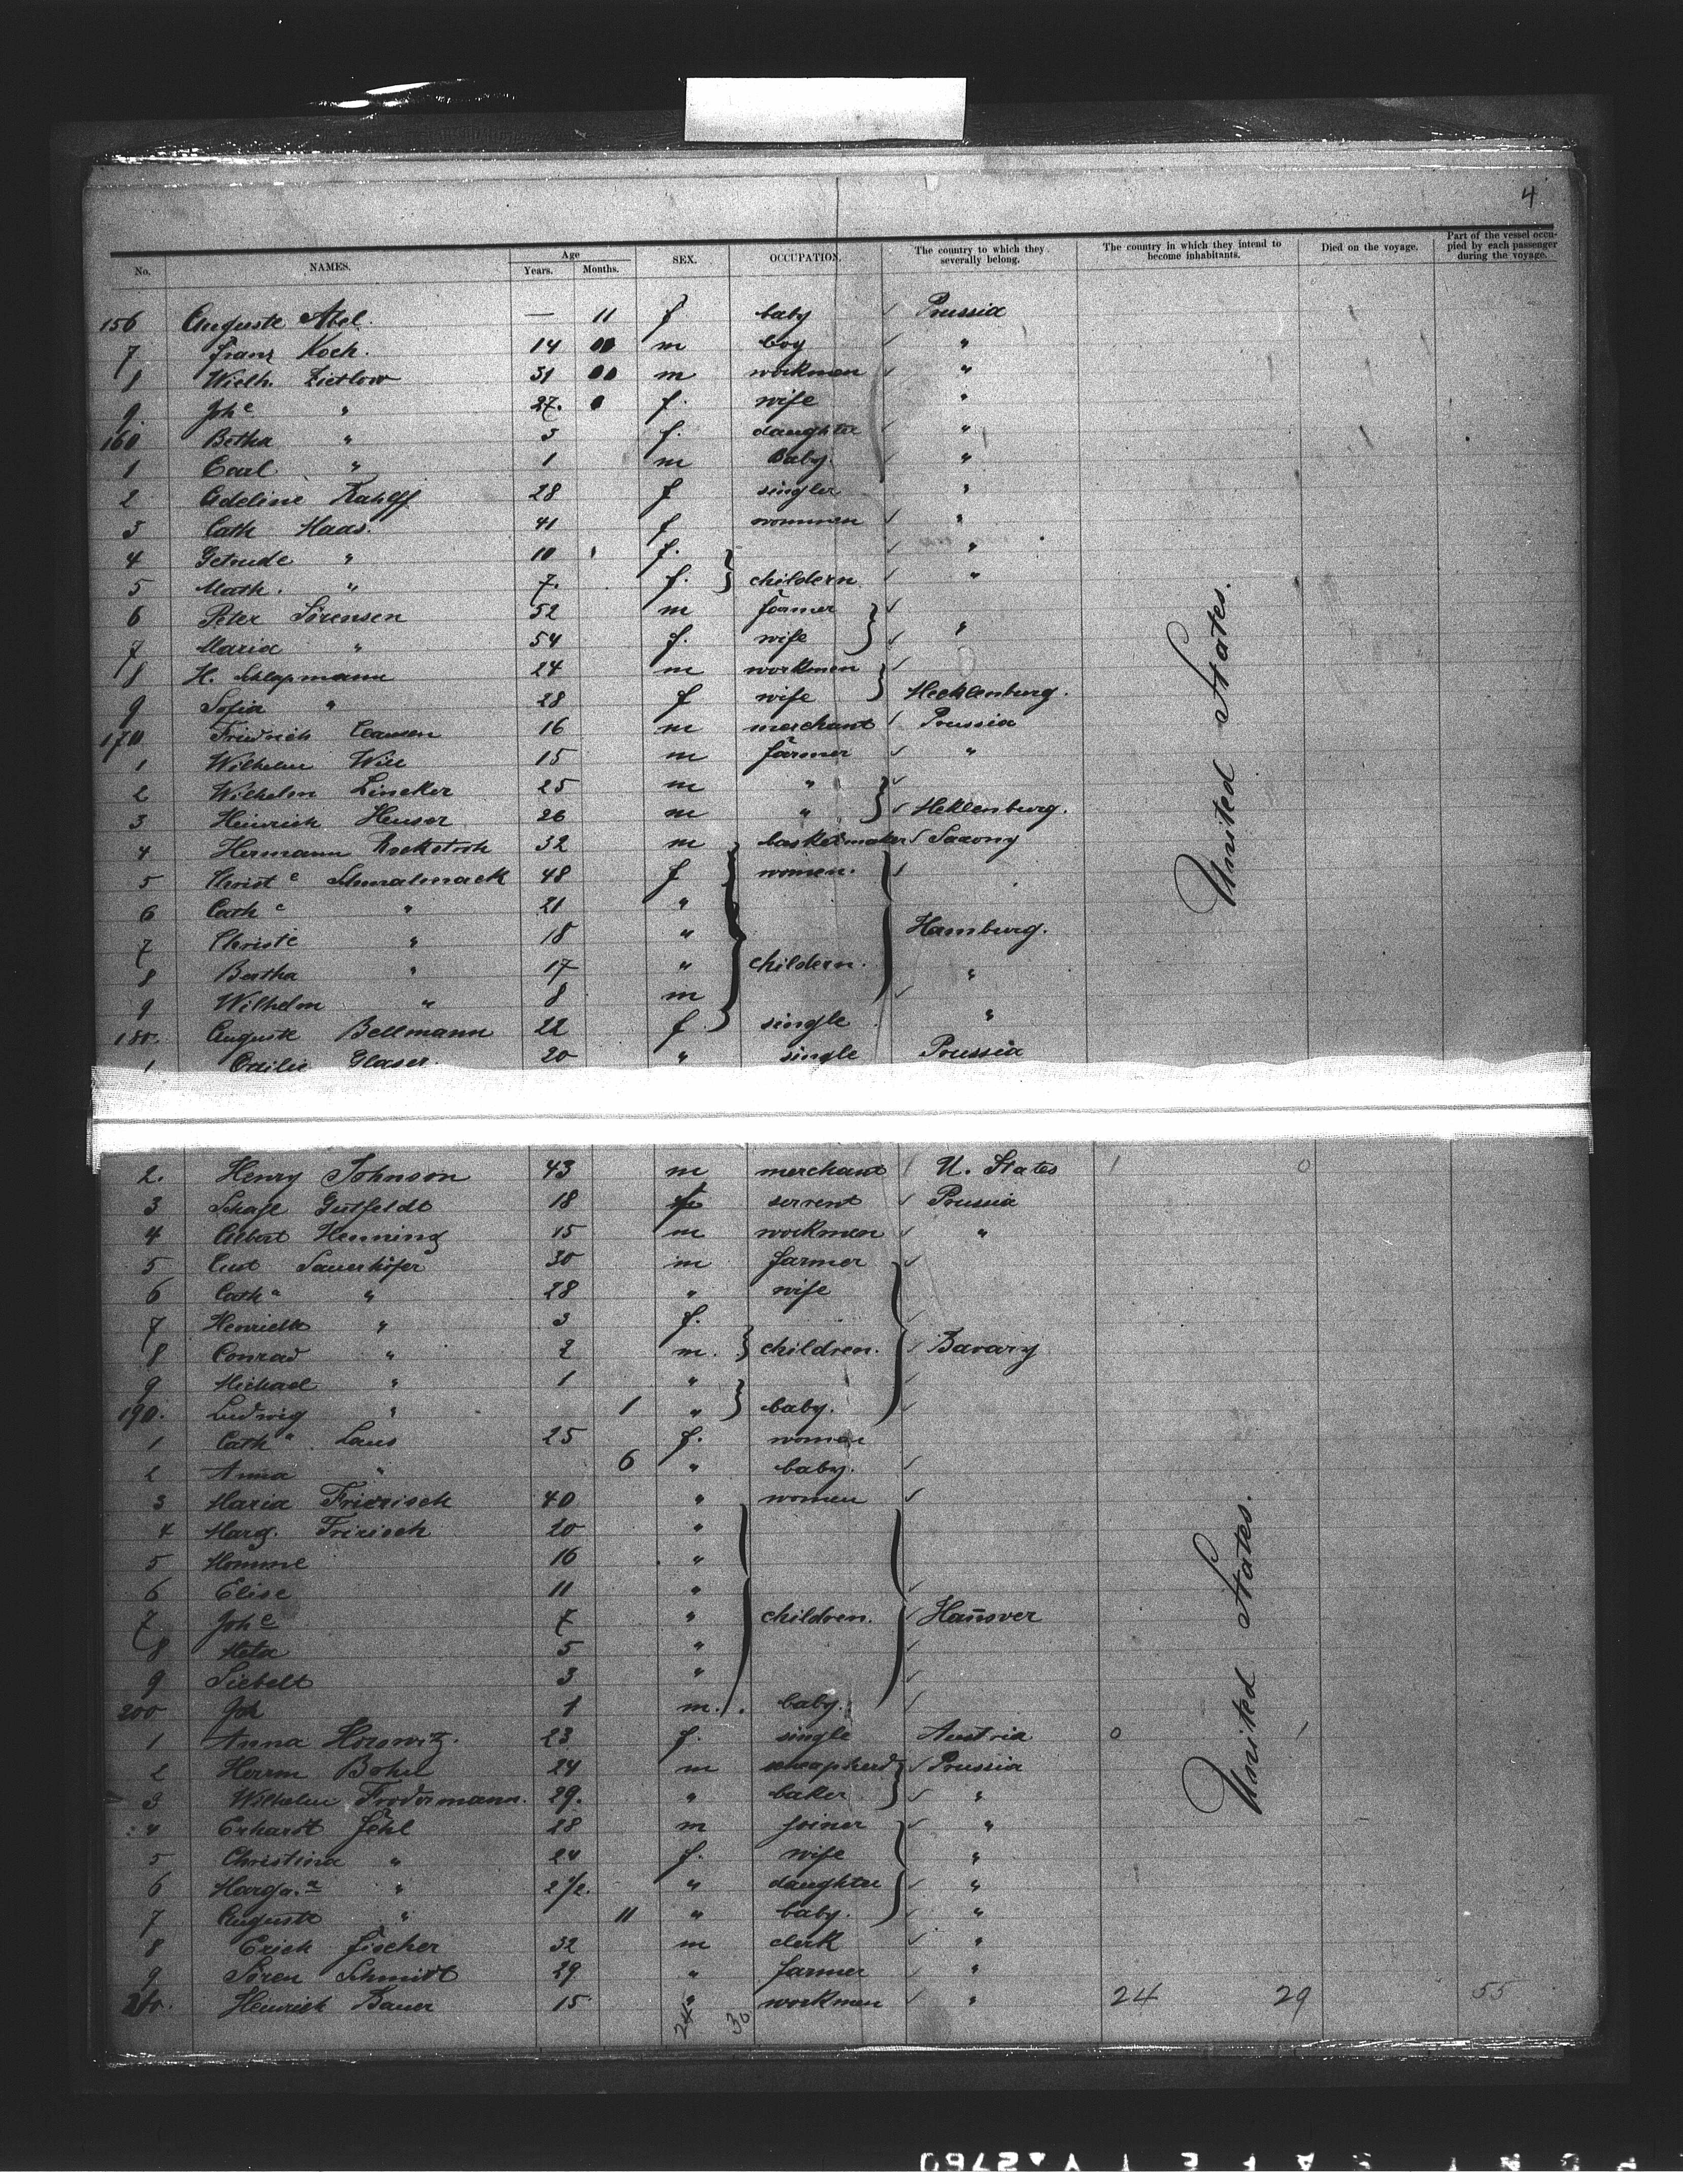 4
No. NAMES. Age Years. Months. SEX. OCCUPATION. The country to which they severally belong. The country in which they intend to become inhabitants. Died on the voyage. Part of the vessel occupied by each passenger during the voyage.
156 Auguste Abel. — 11 f baby ✓ Prussia
7 Franz Koch. 14 m boy ✓ "
8 Wielh. Zietlow 31 m workmen ✓ "
9 Johe " 27. f. wife "
160 Betha " 3 f. daughter ✓ "
1 Carl " 1 m Baby. ✓ "
2 Adeline 28 f singler "
3 Cath Haas. 41 f wommen ✓ "
4 Getrude " 10 f. } ✓ "
5 Math. " 7. f. } childern ✓ "
6 Peter Sörensen 52 m farmer } ✓
7 Maria " 54 f. wife } ✓ "
8 H. Schlapmann 24 m workmen } ✓
9 Sofia " 28 f wife } Mecklenburg.
170 Friedrich Clausen 16 m merchant ✓ Prussia
1 Wilhelm Will 15 m farmer ✓ "
2 Wilhelm Lincker 25 m " } ✓
3 Heinrich Heuser 26 m " } ✓ Meklenburg.
4 Hermann Rockstroh 32 m basketmaker ✓ Saxony
5 Christe 48 f women. ✓
6 Cathe " 21 "
7 Christe " 18 " Hamburg.
8 Bertha " 17 " childern. "
9 Wilhelm " 8 m ✓
180. Auguste Bellmann 22 f single "
1 Glaser. 20 " single Prussia
United States.
2. Henry Johnson 43 m merchant ✓ U. States 1 0
3 Gutfeldt 18 servent ✓ Prussia
4 Albert Henning 15 m workmen ✓ "
5 Sauerhöfer 30 m farmer ✓
6 Catha " 28 " wife
7 Henriette " 3 f. ✓
8 Conrad " 2 m. } children. ✓ Bavary
9 Michael " 1 " ✓
190. Ludwig " 1 " } baby. ✓
1 Catha. Laus 25 f. women
2 Anna " 6 " baby. ✓
3 Maria Fririsch 40 " women ✓
4 Marg. Fririsch 20 "
5 Momme 16 "
6 Elise 11 " ✓
7 Johe 7 " children. ✓ Hanover
8 Meta 5 " ✓
9 Siebelt 3 " ✓
200 Joh 1 m. baby. ✓
1 Anna Horowitz. 23 f. single Austria 0 1
2 Herm Bohn 24 m scheapherd } ✓ Prussia
3 Wilhelm Frodermann. 29. " baker } ✓ "
4 Erhardt Fehl 28 m joiner ✓ "
5 Christina " 24 f. wife "
6 Marga.a " 2 1/2. " daughter ✓ "
7 Auguste " 11 " baby. ✓ "
8 Erich Fischer 32 m clerk ✓ "
9 Sören Schmidt 29 " farmer ✓ "
210. Heinrich Bauer 15 " workmen ✓ " 24 29 55
24 30
United States.